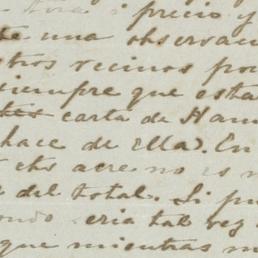 precio y
una observan
tros vecinos po
siempre que esta
carta de Ham
hace de ella). En
acre no es
del total. Si pu
ondo seria tal vez
que mientras m